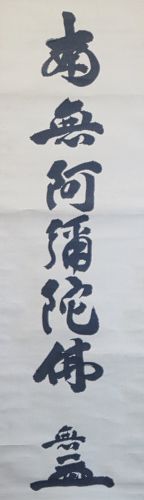 南無阿彌陀佛
無二